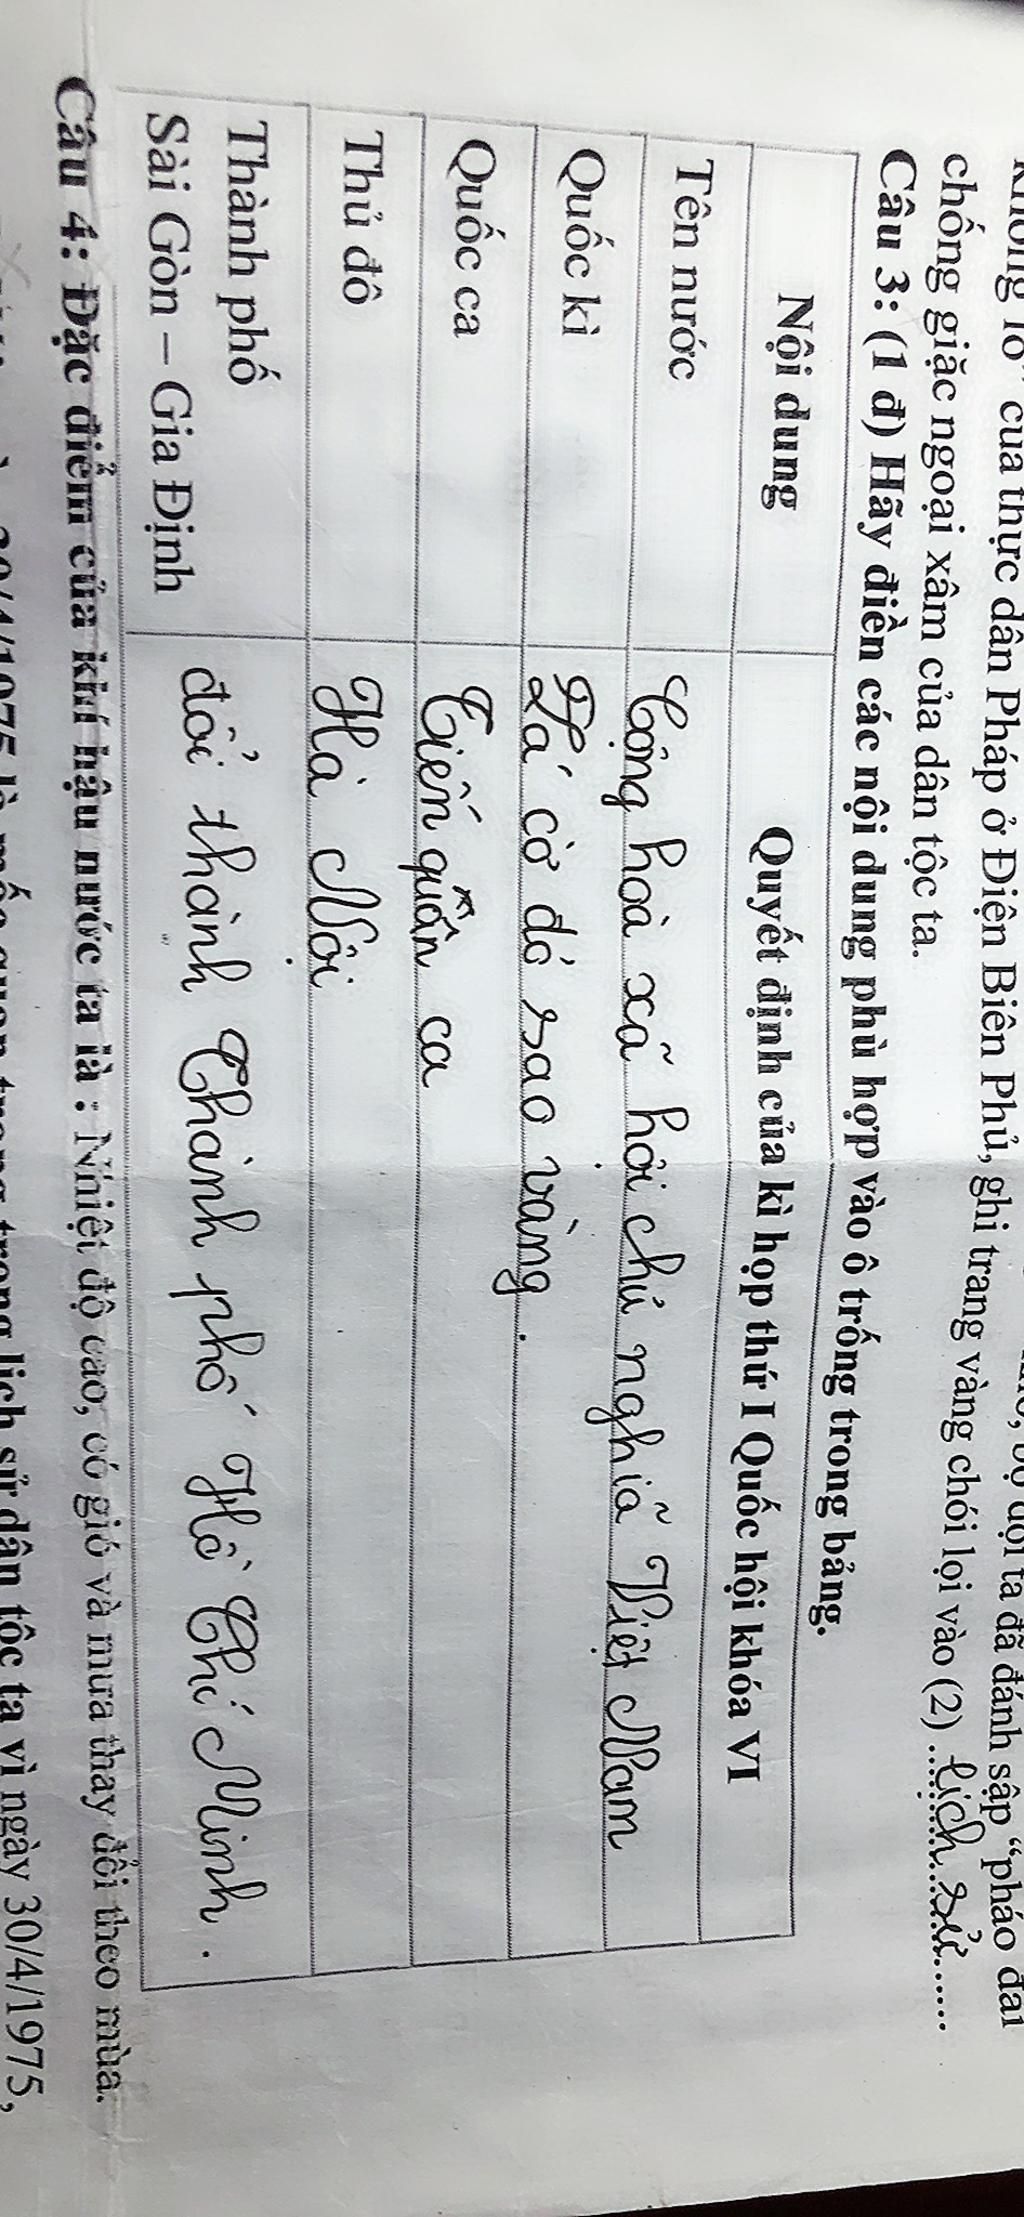 của thực dân Pháp ở Điện Biên Phủ, ghi trang vàng chói lọi vào (2) ...lịch sử......
chống giặc ngoại xâm của dân tộc ta.
Câu 3: (1 đ) Hãy điền các nội dung phù hợp vào ô trống trong bảng.
Nội dung Quyết định của kì họp thứ I Quốc hội khóa VI
Tên nước Cộng hoà xã hội chủ nghĩa Việt Nam
Quốc kì Lá cờ đỏ sao vàng.
Quốc ca Tiến quân ca
Thủ đô Hà Nội
Thành phố
Sài Gòn – Gia Định đổi thành Thành phố Hồ Chí Minh.
Câu 4: Đặc điểm của khí hậu nước ta là : Nhiệt độ cao, có gió và mưa thay đổi theo mùa.
30/4/1975 là mốc quan trọng trong lịch sử dân tộc ta vì ngày 30/4/1975,